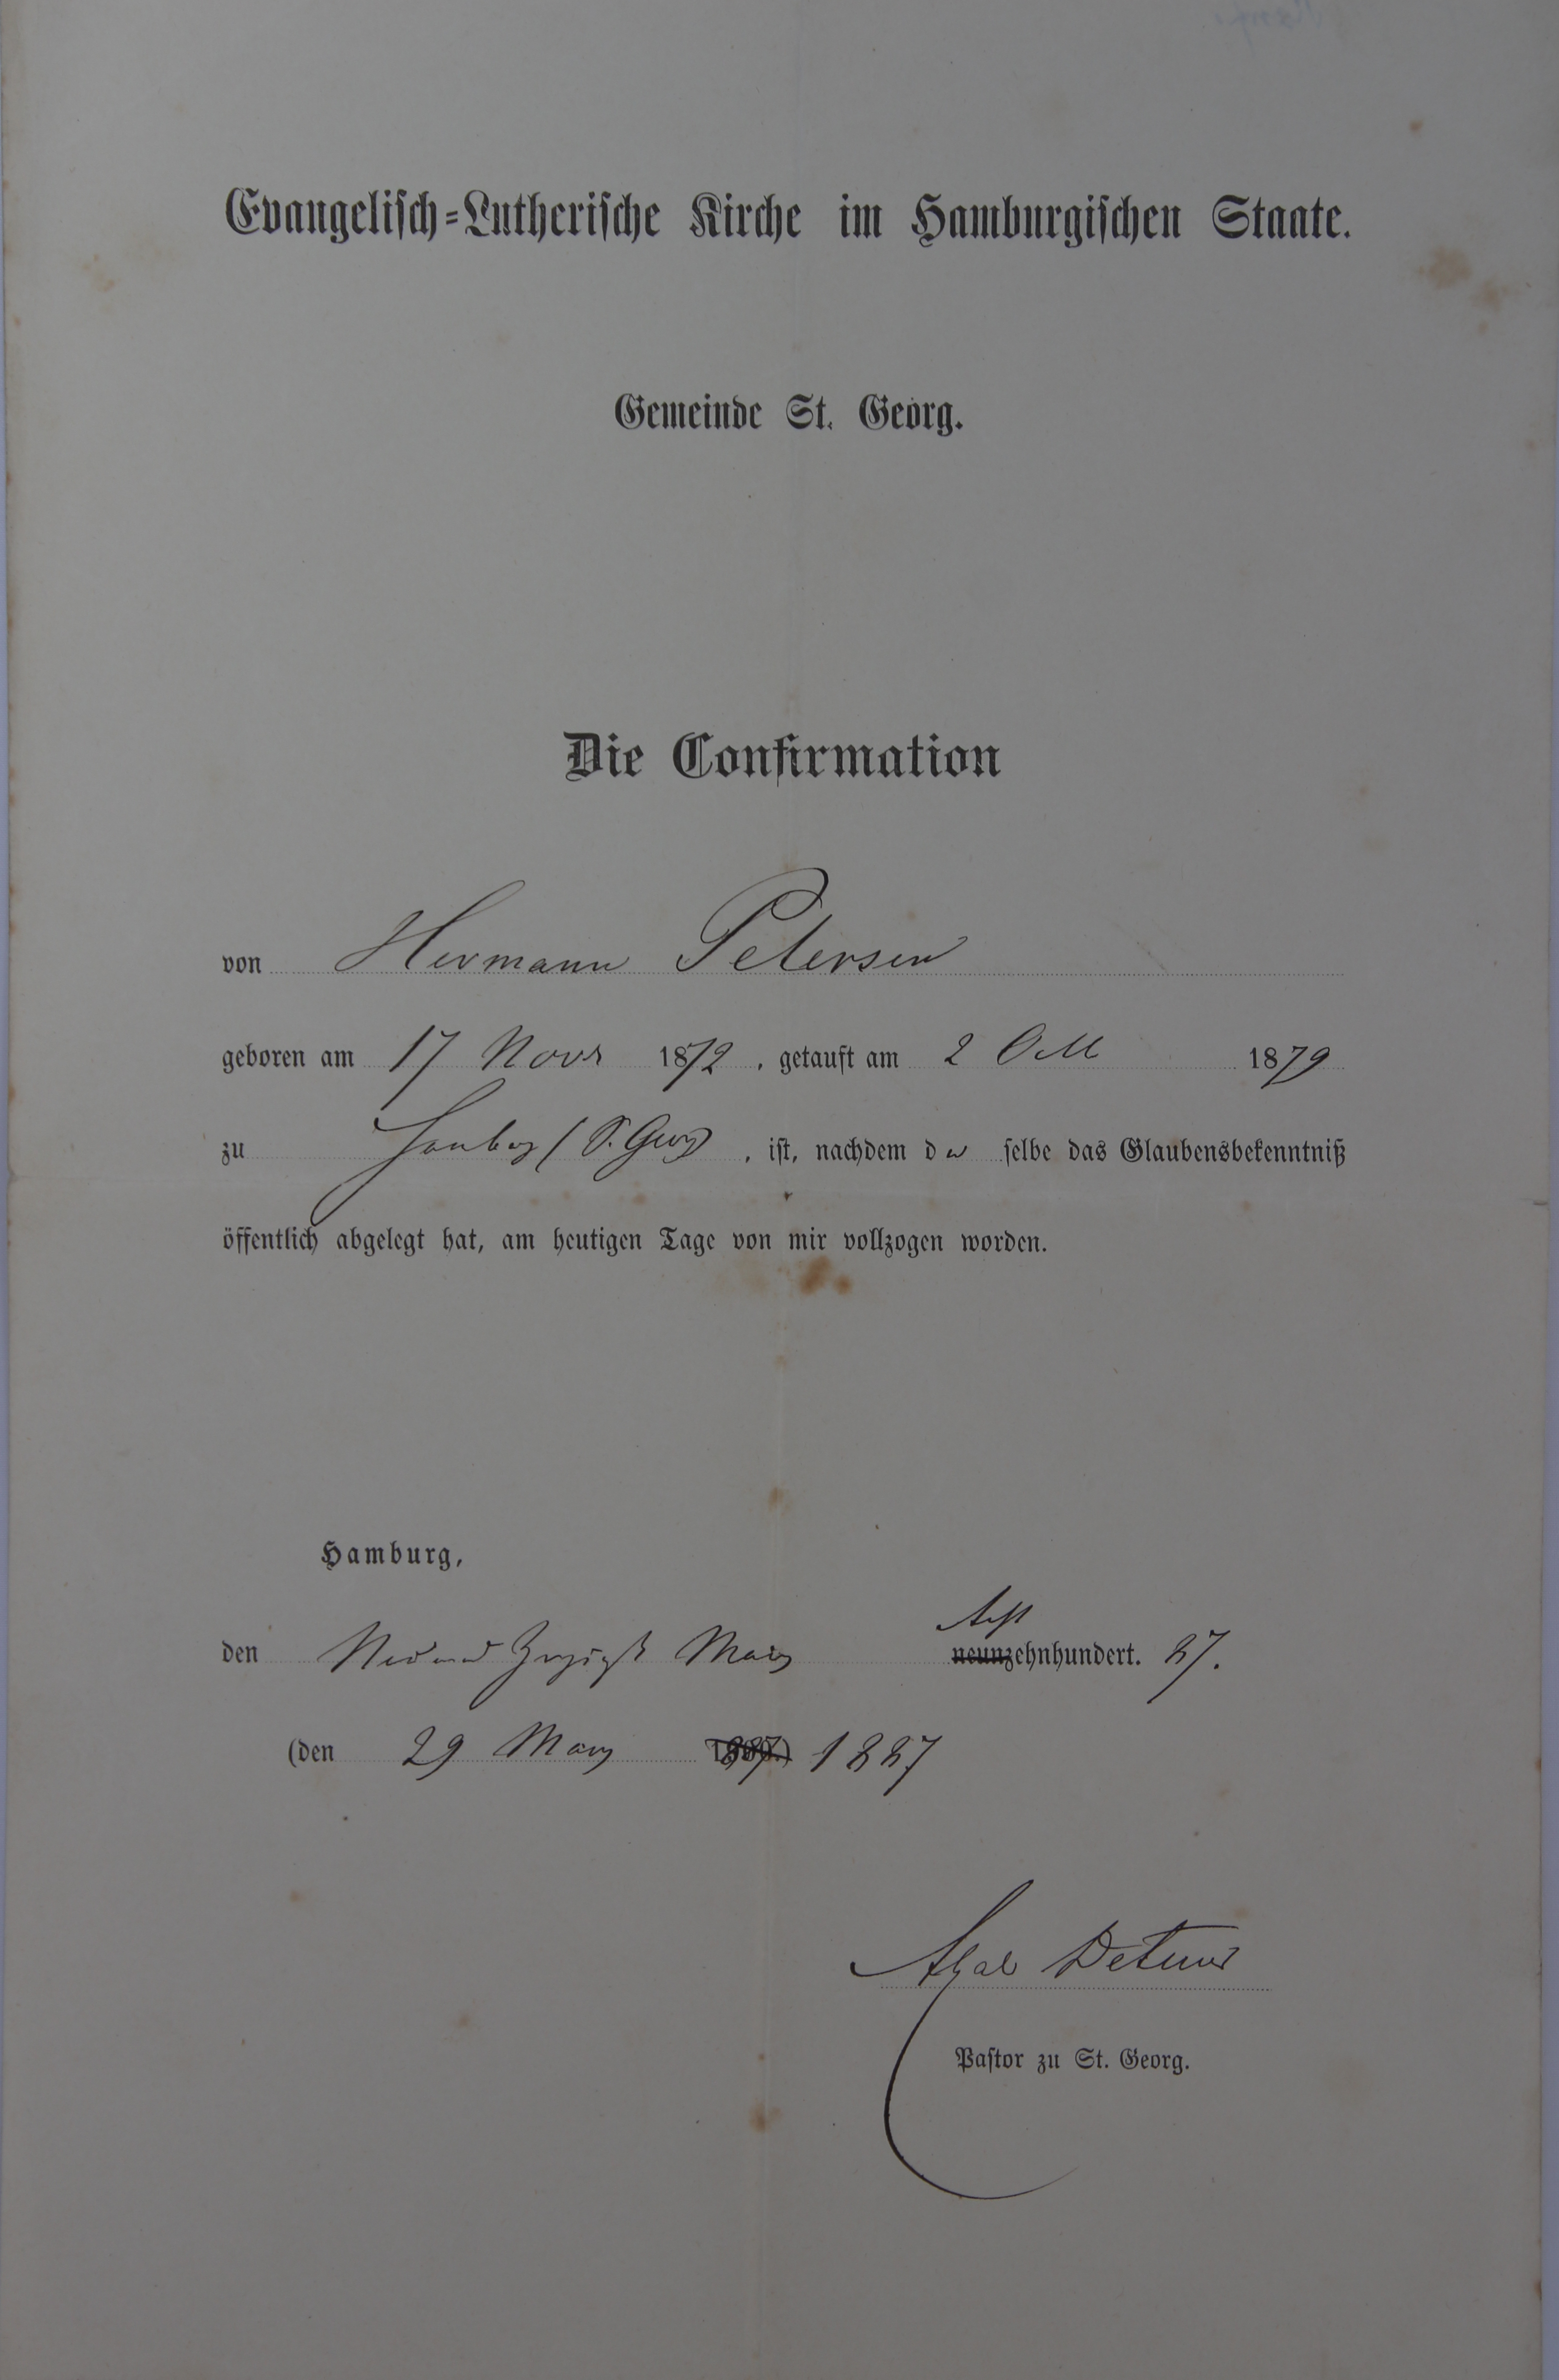 Evangelisch-Lutherische Kirche im Hamburgischen Staate.
Gemeinde St. Georg.
Die Confirmation
von Hermann Petersen
geboren am 17 Novr 1872, getauft am 2 1879
zu Hamburg / S. Georg, ist, nachdem der selbe das Glaubensbekenntniß
öffentlich abgelegt hat, am heutigen Tage von mir vollzogen worden.
Hamburg,
Acht
den März neunzehnhundert. 87.
(den 29 März 1887
Detmer
Pastor zu St. Georg.